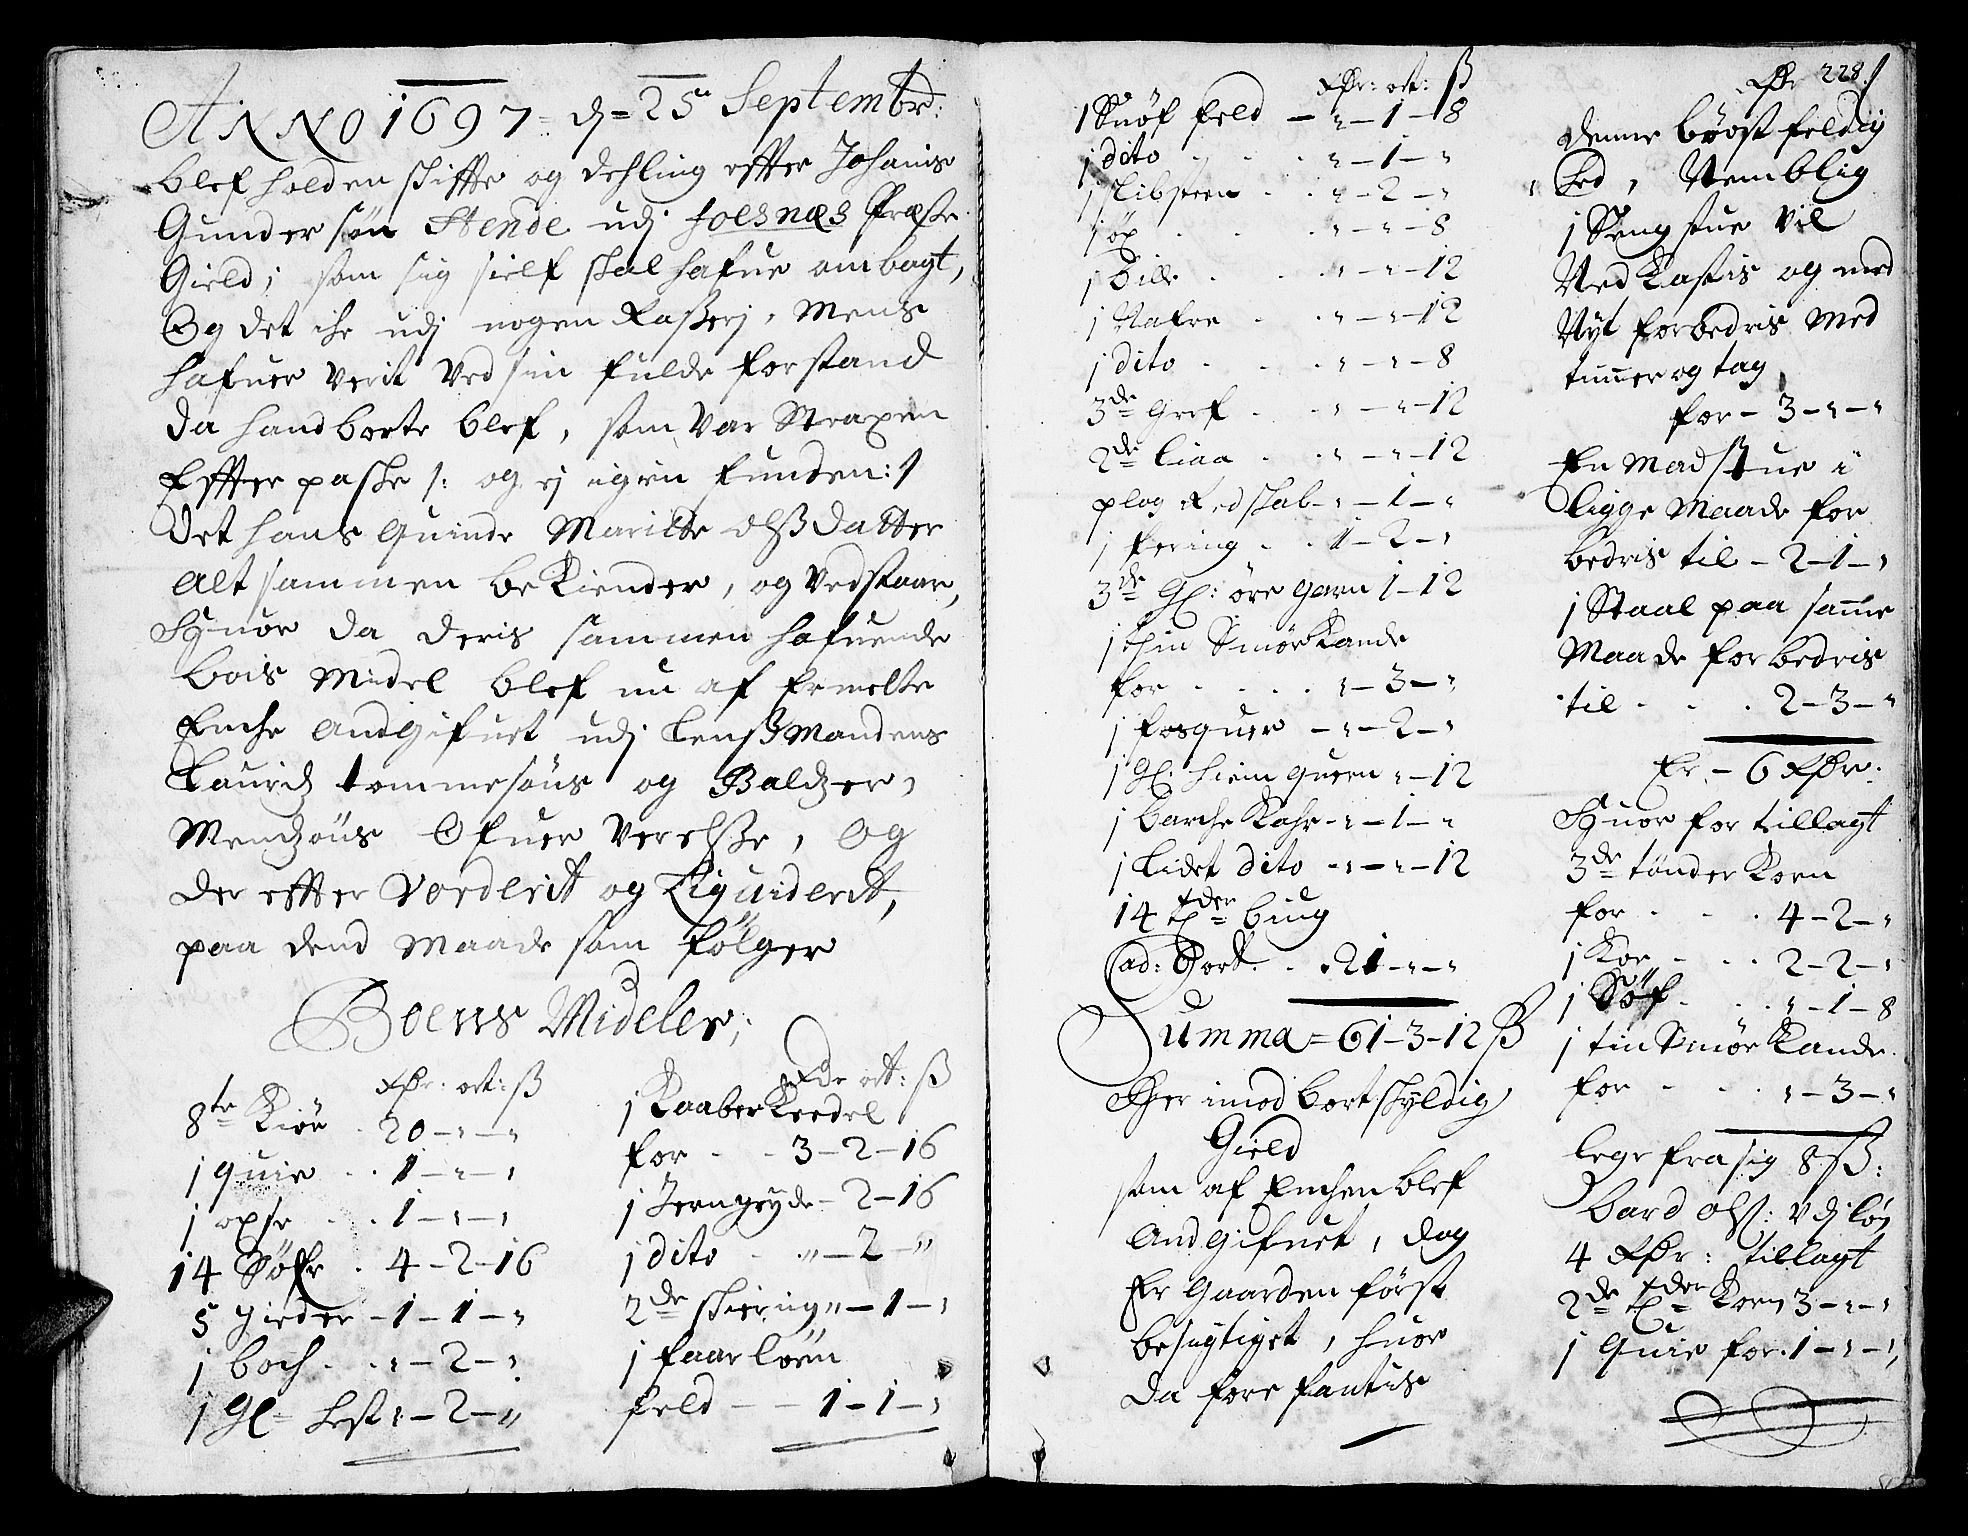 ANNO 1697 = d = 25 Septembr:
blef holden skiffte og dehling effter Johanis
Gundersøn Stende udj foesnæs Præste
Gield; som sig sielf skal hafue ombagt,
Og det ike udj nogen Raßerj, Mens
hafuer verit ved sin fulde forstand
da hand borte blef, som var Straxen
Effter paske /: og ej igien funden :/
det hans Quinde Maritte olßdatter
alt sammen beKiender, og vedstaar,
Huor da deris sammen hafuende
bois Midel blef nu af Ermelte
Enche andgifuet udj Lenßmandens
Lauridz tommesøns og Baldzer,
Mendzøns Ofuer verelße, Og
der effter Vorderit og Liquiderit,
paa dend Maade som følger
Boens Mideler,
Rdr: ort: ß
8te Kiør . 20 - " - "
1 quie . . 1 - " - "
1 oxse . . 1 - " - "
14 Søfr . 4 - 2 - 16
5 gieder - 1 - 1 - "
1 boch . . " - 2 - "
1 gl= hest " - 2 - "
Rdr ort: ß
1 Kaaber Keedel
for - - 3 - 2 - 16
1 Jerngryde - 2 - 16
1 dito - " - 2 - "
2de skiering " - 1 - "
1 faar løen
feld - - 1 - 1 - "
Rdr: ort: ß
1 Suøf feld - " - 1 - 8
1 dito . . . " - 1 - "
1 slibsteen . . " - 2 - "
1 øx . . . " - " - 8
1 bille . . . " - " - 12
1 Nafre . . " - " - 12
1 dito . . . " - " - 8
3de gref . . " - " - 12
2de liaa . . " - " - 12
plog Redskab - " - 1 - "
1 fering . . 1 - 2 - "
3de gl: øre garn 1 - 12
1 thin Smør Kande
for . . . . " - 3 - "
1 fosquer - " - 2 - "
1 gl: hiem quern " - 12
1 barche Kahr - " - 1 - "
1 lidet dito - " - " - 12
14 tder biug
ad: 6 ort . . 21 - " - "
Summa = 61 - 3 - 12 ß
Her imod bortskyldig
Gield
som af Enchen blef
andgifuet, dog
Er gaarden først
besigtiget, huor
da fore fantis
Rdr 228
denne brøstfeldig
hed, Nemblig
1 Sengstue vil
Ned Kastis og med
Nyt forbedris med
tim̄er og tag
for - 3 - " - "
En Madstue i
ligge Maade for
bedris til - 2 - 1 - "
1 Staal paa sam̄e
Maade forbedris
til . . . 2 - 3 - "
Er - 6 Rdr.
Huor for tillagt
3de tønder Korn
for . . . 4 - 2 - "
1 Koe - . . 2 - 2 - "
1 Søf . . . " - 1 - 8
1 tin Smør Kande
for - - . " - 3 - "
lege fra sig 8 ß:
bard olß: udj løn
4 Rdr: tillagt
2de tder Korn 3 - " - "
1 Quie for . 1 - " - "